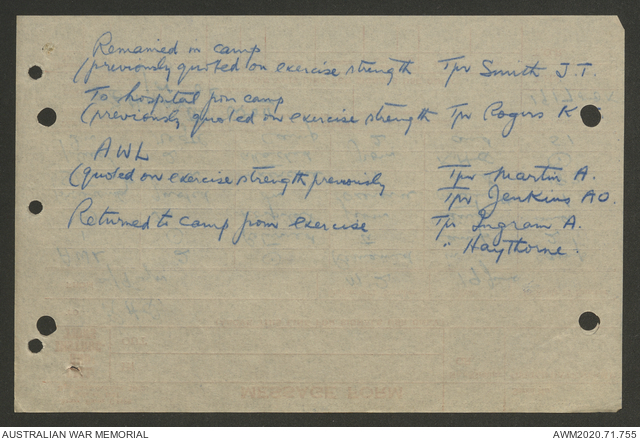 Remained in camp
(previously quoted on exercise strength Tpr Smith J.T.
To hospital from camp
(previously quoted on exercise strength Tpr Rogers K
AWL
(quoted on exercise strength previously Tpr Martin A.
Tpr Jenkins AO.
Returned to camp from exercise Tpr Ingram A.
" Haythorne.
MESSAGE FORM
AUSTRALIAN WAR MEMORIAL AWM2020.71.755